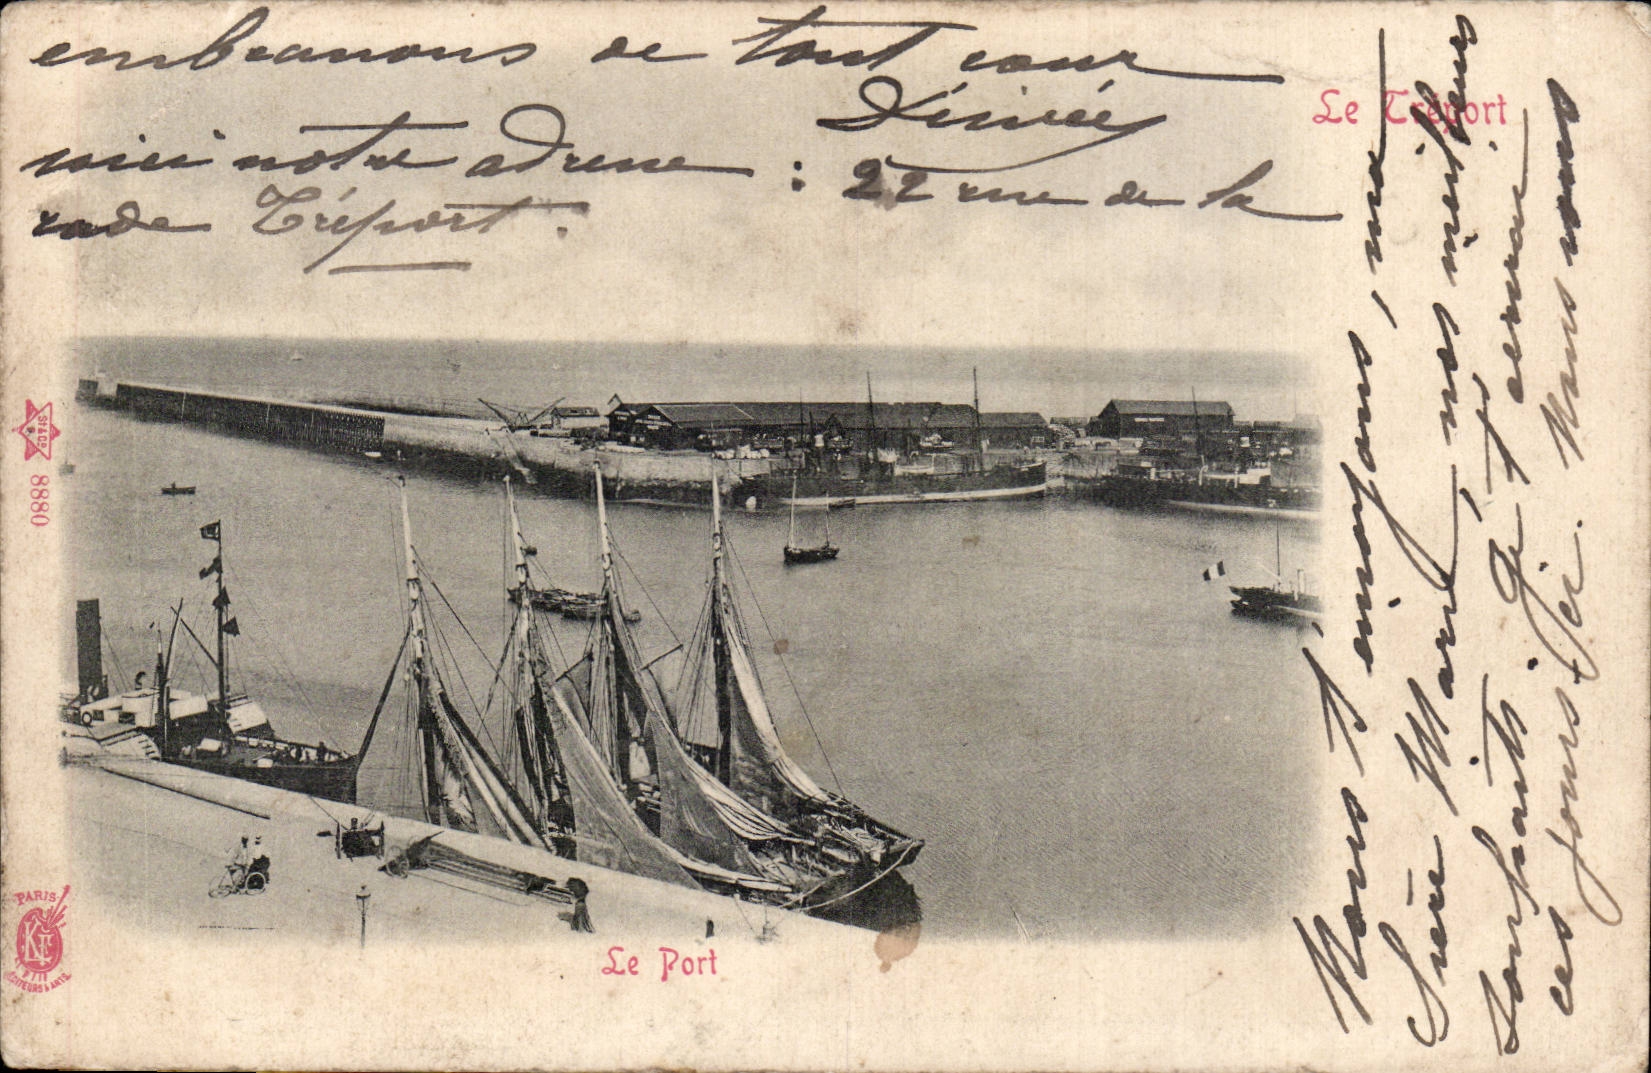 Nous t'envoyons, ma
chère Marie, nos meilleurs
souhaits. Je t'écrirai
ces jours-ci. Nous vous
embrassons de tout cœur
Désirée
voici notre adresse : 22 rue de la
rade Tréport.
Le Tréport
8880
PARIS
Le Port